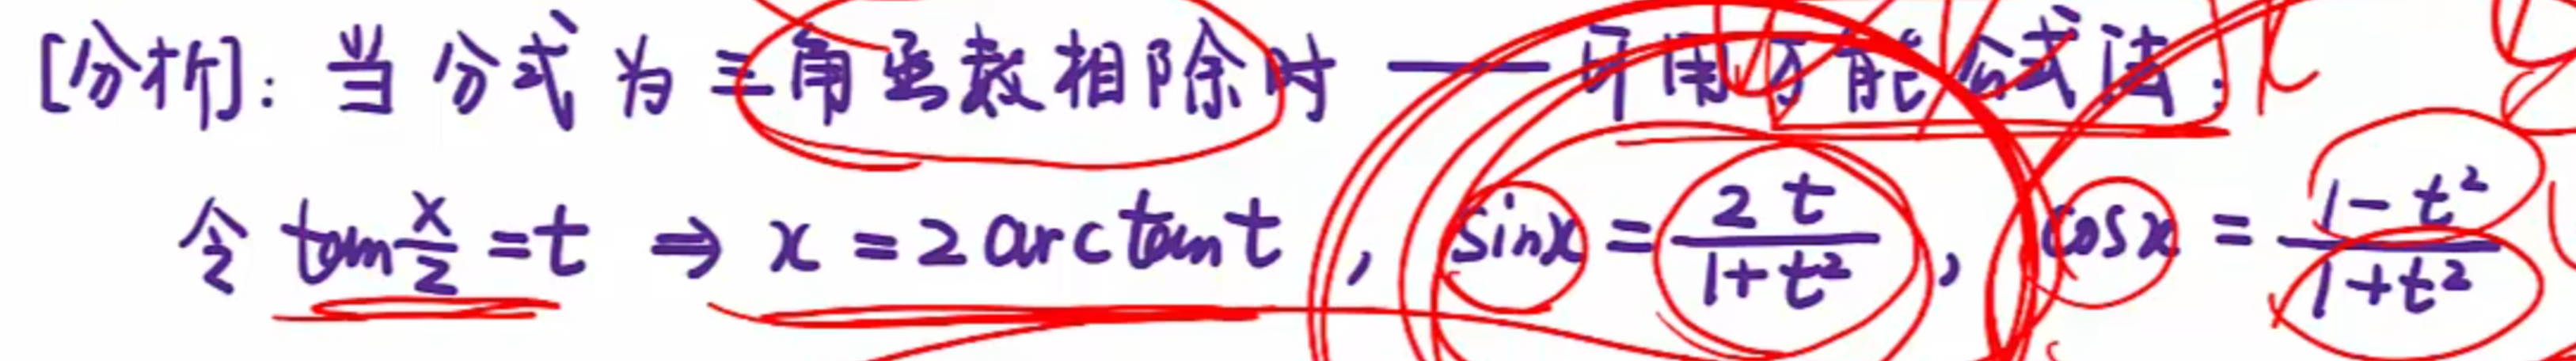 [分析]: 当分式为三角函数相除时 —— 可用万能公式法:
令 tan x/2 = t ⇒ x = 2 arctan t , sinx = 2t/(1+t²) , cosx = (1-t²)/(1+t²)